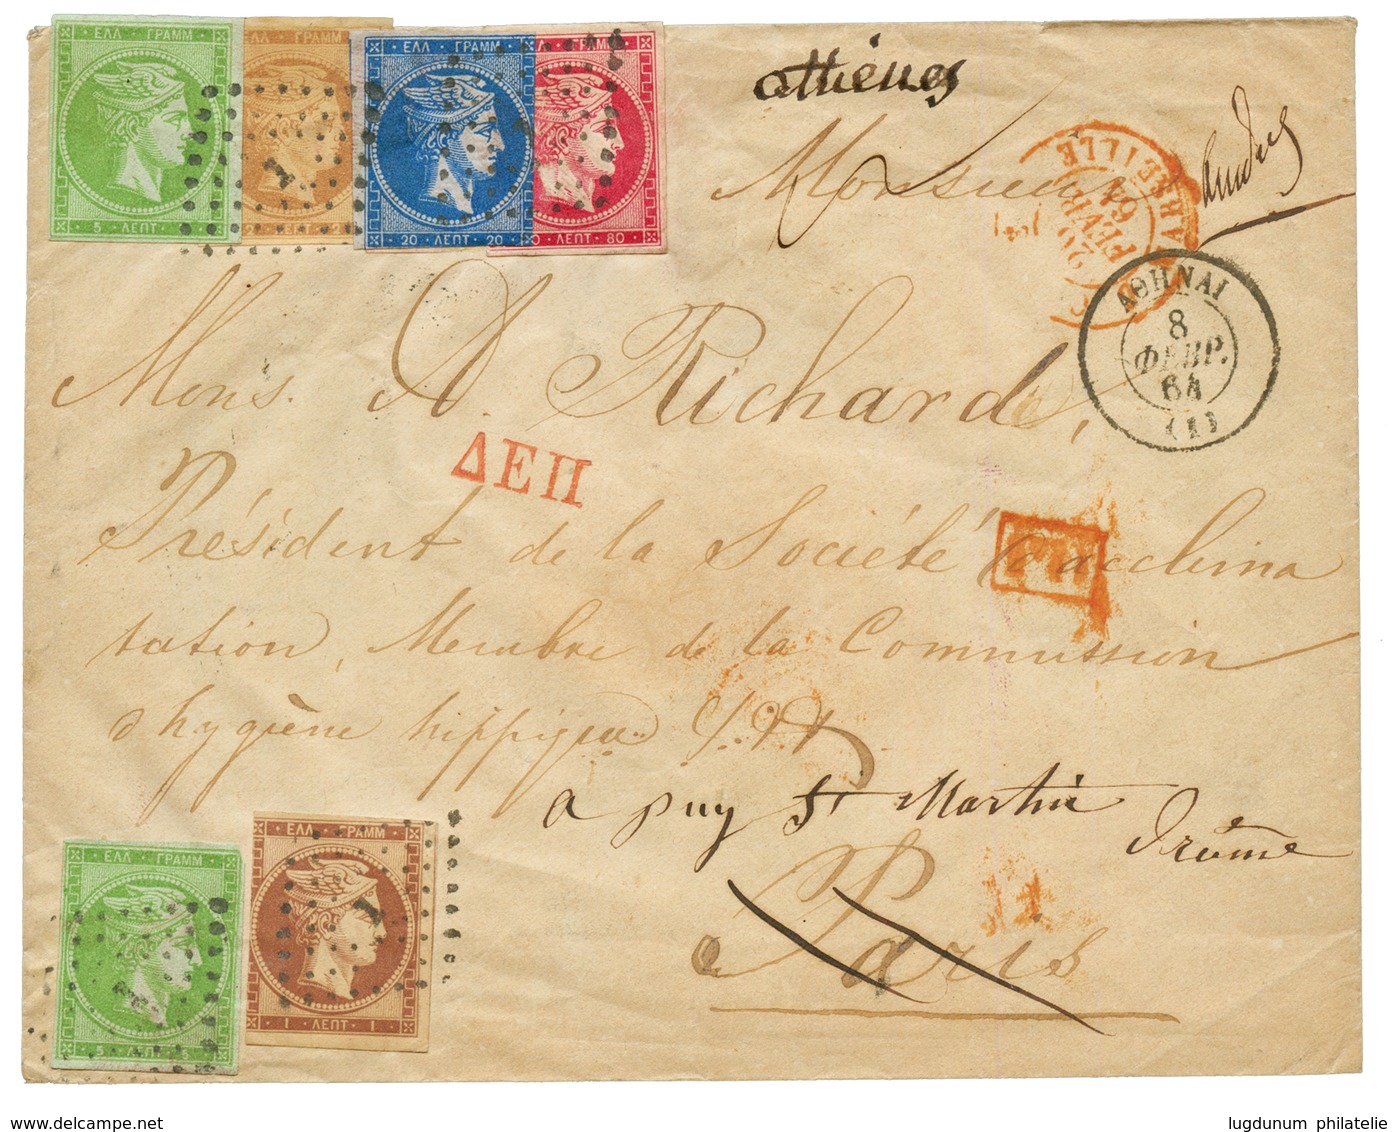 ΕΛΛ ΓΡΑΜΜ
5 ΛΕΠΤ
ΓΡΑΜΜ
2
ΕΛΛ ΓΡΑΜΜ
20 ΛΕΠΤ 20
ΓΡΑΜΜ
ΛΕΠΤ 80
1
athènes
Monsieur
MARSEILLE
20
FEVR
64
ΑΘΗΝΑΙ
8
ΦΕΒΡ.
64
(1)
Mons. A. Richard,
ΔΕΠ
Président de la Société d'acclima
tation, Membre de la Commission
d'hygiène hippique
a puy St Martin
Drôme
a Paris
ΕΛΛ ΓΡΑΜΜ
5 ΛΕΠΤ 5
ΕΛΛ ΓΡΑΜΜ
1 ΛΕΠΤ 1
1
www.delcampe.net
lugdunum philatelie